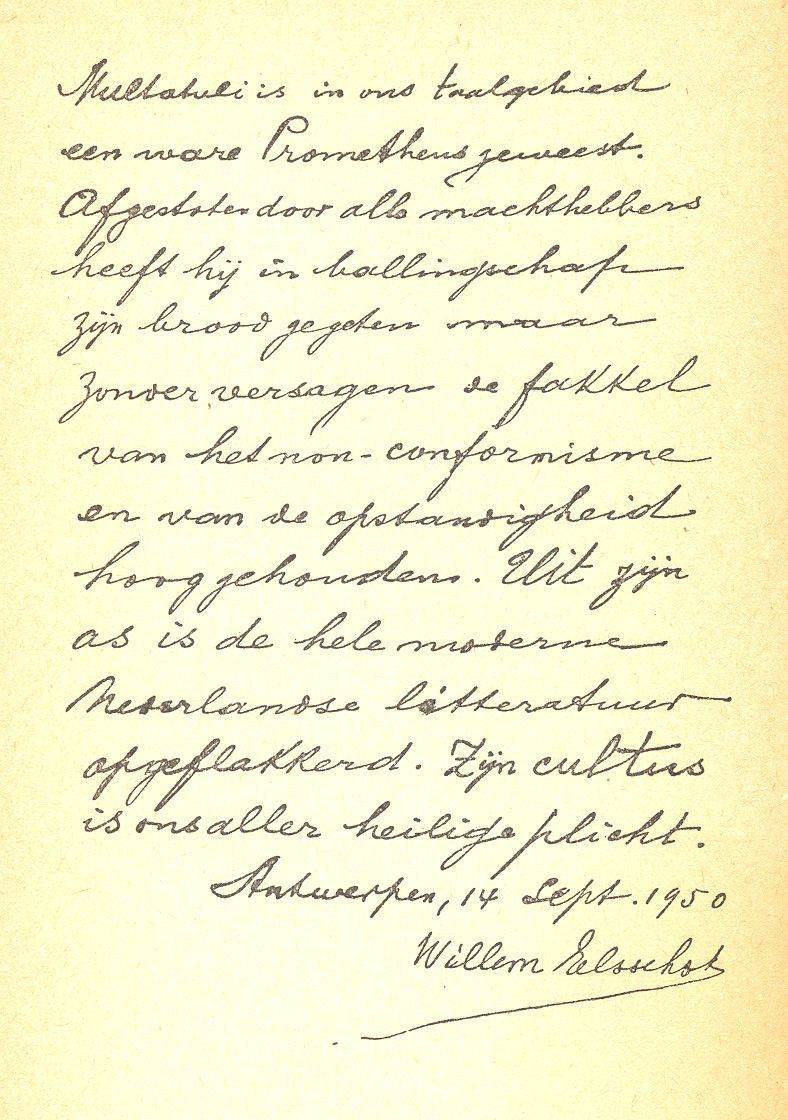 Multatuli is in ons taalgebied
een ware Prometheus geweest.
Afgestoten door alle machthebbers
heeft hij in ballingschap
zijn brood gegeten maar
zonder versagen de fakkel
van het non-conformisme
en van de opstandigheid
hooggehouden. Uit zijn
as is de hele moderne
Nederlandse litteratuur
opgeflakkerd. Zijn cultus
is ons aller heilige plicht.
Antwerpen, 14 Sept. 1950
Willem Elsschot